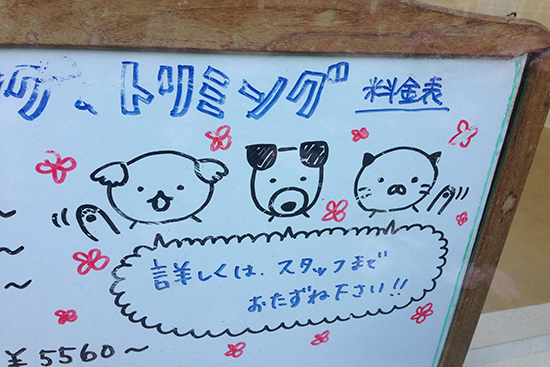 グ、トリミング 料金表
～
～
～
詳しくは、スタッフまで
おたずね下さい!!
￥5560～